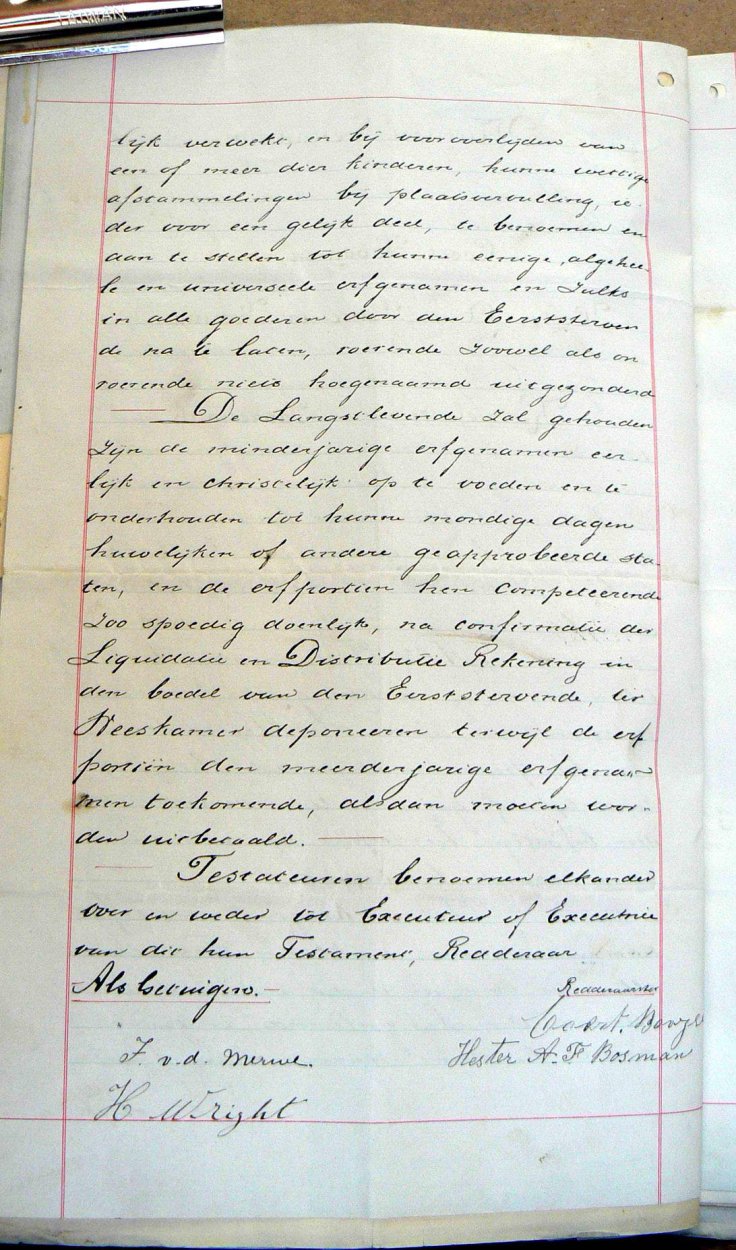 TATMAN
lijk verwekt, en bij vooroverlijden van
een of meer dier kinderen, hunne wettige
afstammelingen bij plaatsvervulling, ie-
der voor een gelijk deel, te benoemen en
aan te stellen tot hunne eenige, algehee-
le en universeele erfgenamen en Zulks
in alle goederen door den Eerststerven
de na te laten, roerende Zoowel als on
roerende niets hoegenaamd uitgezonderd
De Langstlevende Zal gehouden
Zijn de minderjarige erfgenamen eer-
lijk en christelijk op te voeden en te
onderhouden tot hunne mondige dagen
huwelijken of andere geapprobeerde sta-
ten, en de erfportien hen competeerende
Zoo spoedig doenlijk, na confirmatie der
Liquidatie en Distributie Rekening in
den boedel van den Eerststervende, ter
Weeskamer deponeeren terwijl de erf
portiën den meerderjarige erfgena-
men toekomende, alsdan moeten wor-
den uitbetaald.
Testateuren benoemen elkander
over en weder tot Executeur of Executrice
van dit hun Testament, Redderaar
Als getuigen.
Redderaarster
Coert.
Hester A. F Bosman
J. v. d. Merwe.
H Wright